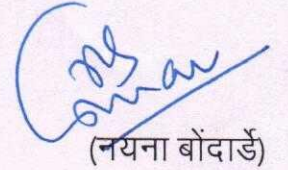 (नयना बोंदार्डे)